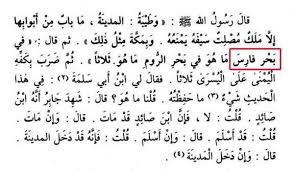 قَالَ رَسُولُ اللهِ ﷺ : « وَطَيْبَةُ : المَدِينَةُ ، مَا بَابٌ مِنْ أَبْوَابِهَا
إِلَّا مَلَكٌ مُصْلِتٌ سَيْفَهُ يَمْنَعُهُ . وَبِمَكَّةَ مِثْلُ ذَلِكَ » . ثم قال : « فِي
بَحْرِ فَارِسَ مَا هُوَ فِي بَحْرِ الرُّومِ مَا هُوَ » ثَلَاثاً . ثُمَّ ضَرَبَ بِكَفِّهِ
اليُمْنَى عَلَى اليُسْرَى ثَلَاثاً . فَقَالَ لِي ابْنُ أَبِي سَلَمَةَ (٢) : فِي هَذَا
الحَدِيثِ شَيْءٌ (٣) مَا حَفِظْتُهُ . قُلْنَا مَا هُوَ ؟ قَالَ : شَهِدَ جَابِرٌ أَنَّهُ ابْنُ
صَائِدٍ . قُلْتُ : فَإِنَّ ابْنَ صَائِدٍ قَدْ مَاتَ . قَالَ : وَإِنْ مَاتَ .
قُلْتُ : فَإِنَّهُ قَدْ أَسْلَمَ . قَالَ : وَإِنْ أَسْلَمَ . قُلْتُ : فَإِنَّهُ قَدْ دَخَلَ
المَدِينَةَ . قَالَ : وَإِنْ دَخَلَ المَدِينَةَ (٤) .